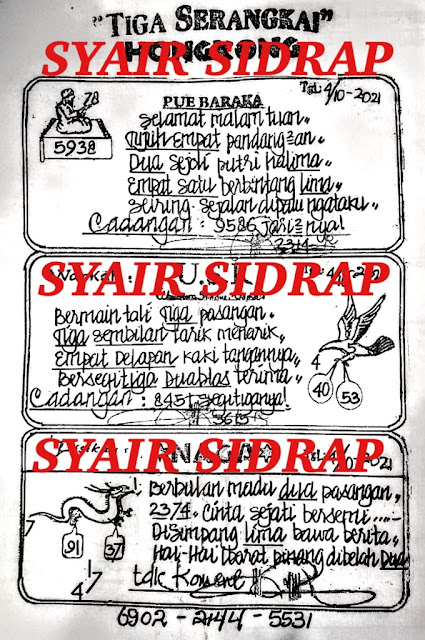 "TIGA SERANGKAI"
HONGKONG
SYAIR SIDRAP
Tgl. 4/10-2021
PUE BARAKA
78
5938
Selamat malam tuan"
Tujuh Empat pandang=an"
Dua Sejoli putri halima"
Empat satu berbintang lima"
Seiring sejalan
Cadangan : 9586 Jari=nya!
2374
SYAIR SIDRAP
Bermain tali Tiga pasangan"
Tiga sembilan tarik menarik"
Empat Delapan kaki tangannya"
Bersegitiga Duablas terima"
Cadangan : 8451 segitiganya!
3615
4 5
40 53
SYAIR SIDRAP
NAGA
2021
Berbulan madu dua pasangan"
2374. Cinta sejati bersemi
Disimpang lima bawa berita"
Hai-Hai Ibarat pinang dibelah Dua
91 37
1
4 7
6902 - 2144 - 5531